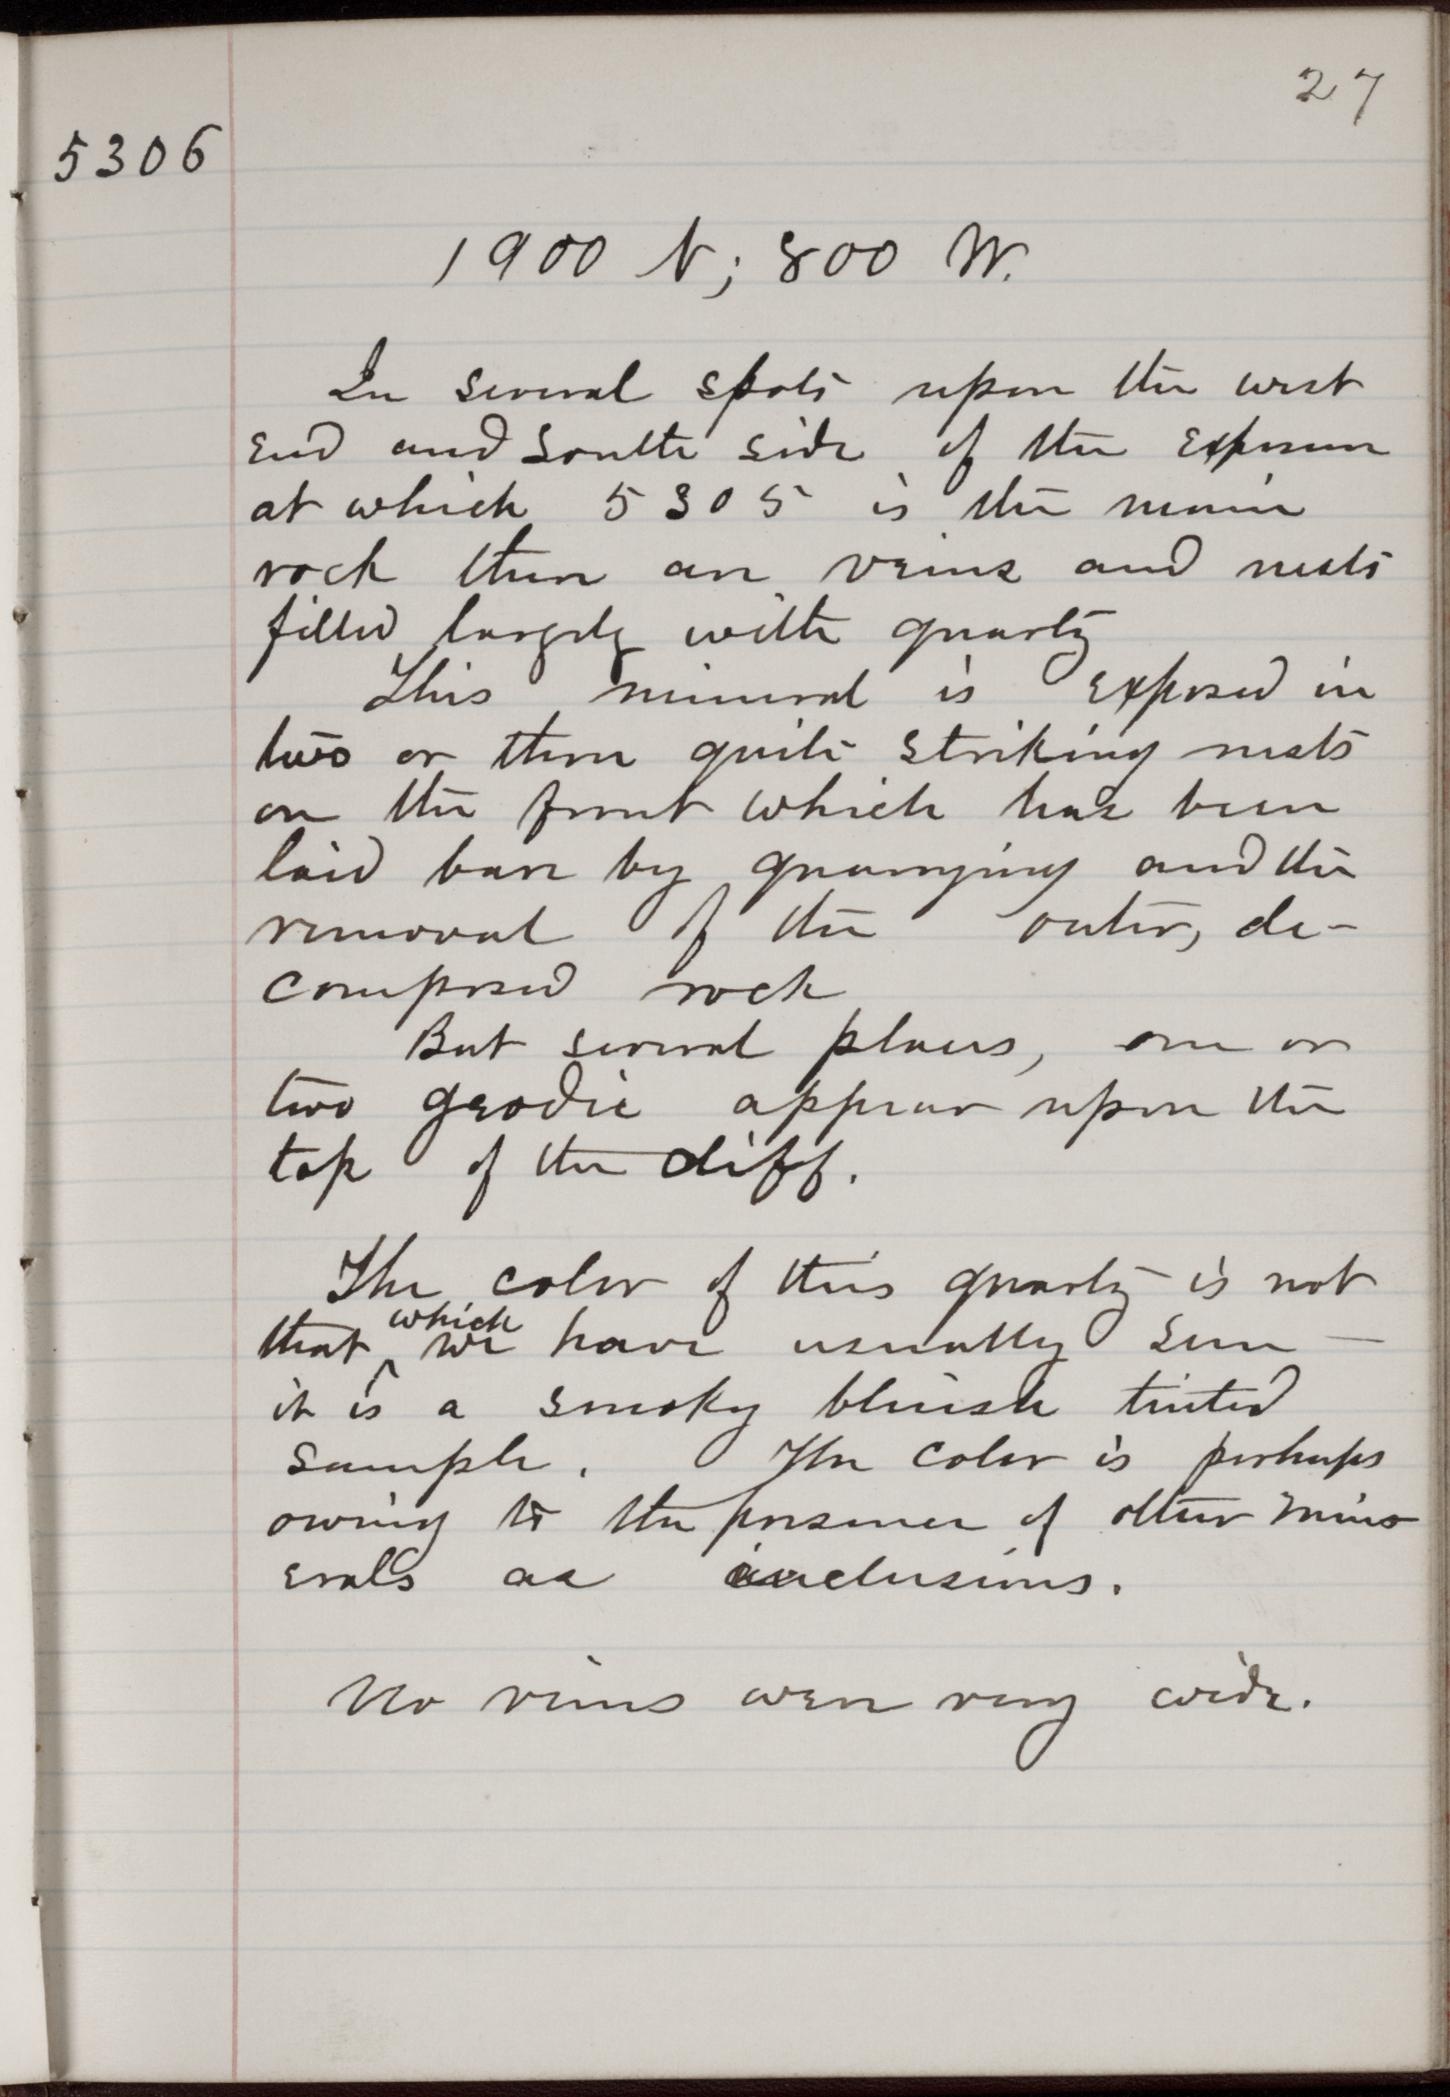 27
5306
1900 N; 800 W.
In several spots upon the west
end and South side of the exposure
at which 5305 is the main
rock there are veins and nests
filled largely with quartz
This mineral is exposed in
two or three quite striking nests
on the front which has been
laid bare by quarrying and the
removal of the outer, de-
composed rock
But several places, one or
two geodic appear upon the
top of the cliff.
The color of this quartz is not
that which we have usually seen —
it is a smoky bluish tinted
sample. The color is perhaps
owing to the presence of other min-
erals as inclusions.
No veins were very wide.